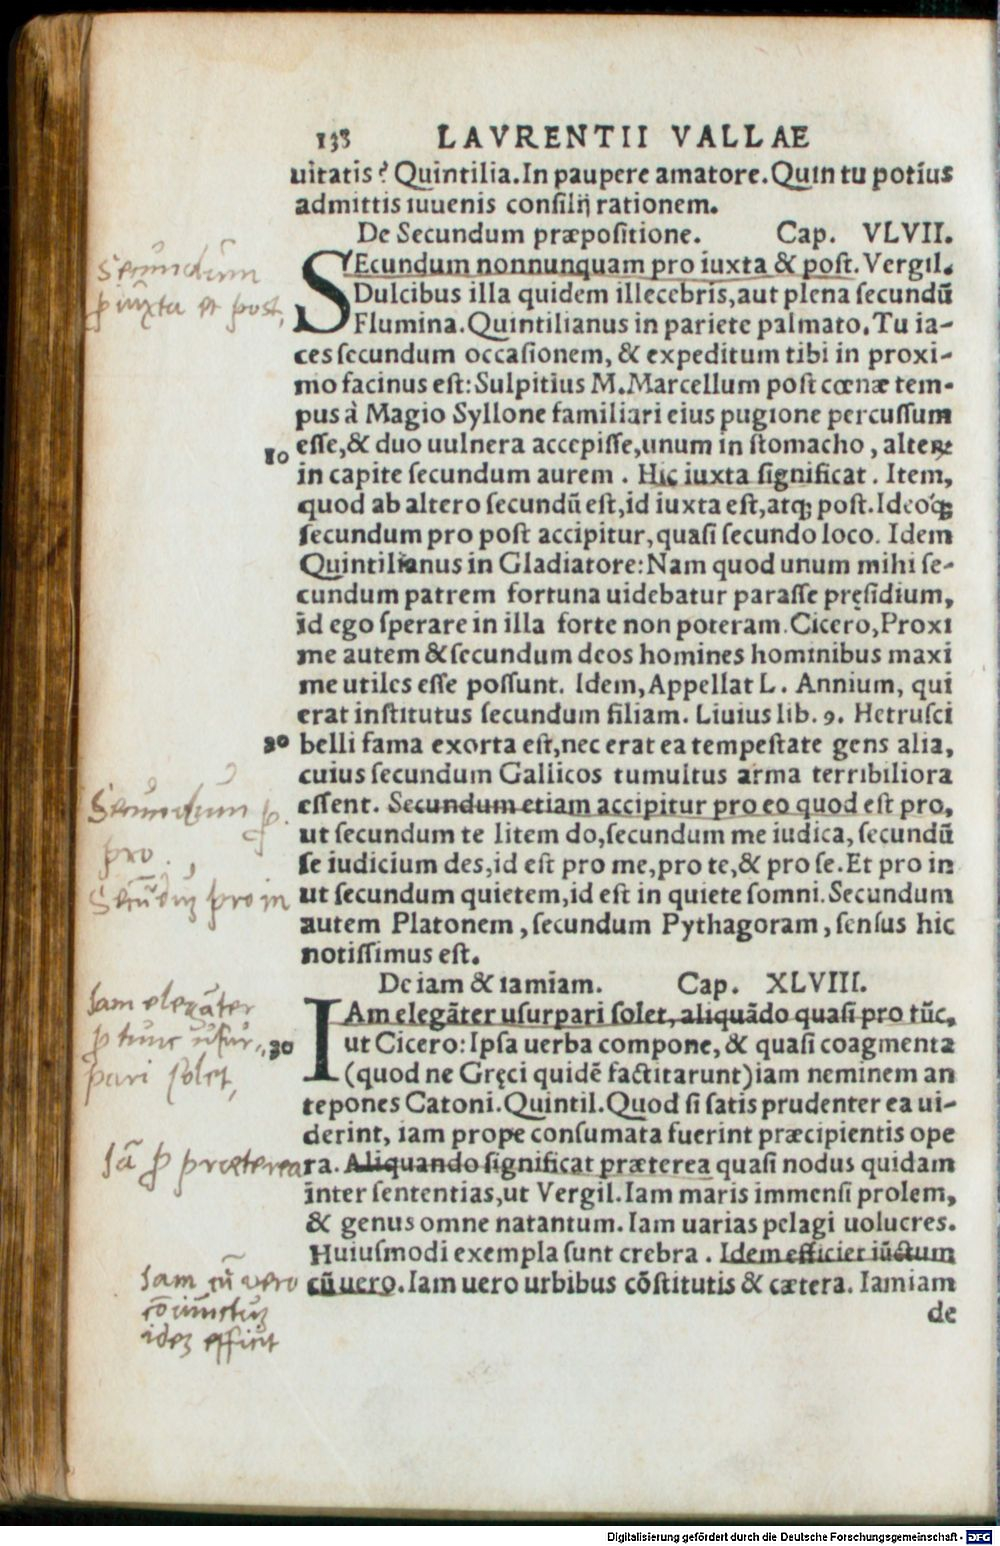 138 LAVRENTII VALLAE
uitatis? Quintilia. In paupere amatore. Quin tu potius
admittis iuuenis consilij rationem.
De Secundum præpositione. Cap. VLVII.
SEcundum nonnunquam pro iuxta & post. Vergil.
Dulcibus illa quidem illecebris, aut plena secundũ
Flumina. Quintilianus in pariete palmato. Tu ia-
ces secundum occasionem, & expeditum tibi in proxi-
mo facinus est: Sulpitius M. Marcellum post cœnæ tem-
pus à Magio Syllone familiari eius pugione percussum
10 esse, & duo uulnera accepisse, unum in stomacho, alteꝝ
in capite secundum aurem. Hic iuxta significat. Item,
quod ab altero secundũ est, id iuxta est, atqꝫ post. Ideóqꝫ
secundum pro post accipitur, quasi secundo loco. Idem
Quintilianus in Gladiatore: Nam quod unum mihi se-
cundum patrem fortuna uidebatur parasse pręsidium,
id ego sperare in illa forte non poteram. Cicero, Proxi
me autem & secundum deos homines hominibus maxi
me utiles esse possunt. Idem, Appellat L. Annium, qui
erat institutus secundum filiam. Liuius lib. 9. Hetrusci
20 belli fama exorta est, nec erat ea tempestate gens alia,
cuius secundum Gallicos tumultus arma terribiliora
essent. Secundum etiam accipitur pro eo quod est pro,
ut secundum te litem do, secundum me iudica, secundũ
se iudicium des, id est pro me, pro te, & pro se. Et pro in
ut secundum quietem, id est in quiete somni. Secundum
autem Platonem, secundum Pythagoram, sensus hic
notissimus est.
De iam & iamiam. Cap. XLVIII.
IAm elegãter usurpari solet, aliquãdo quasi pro tũc,
30 ut Cicero: Ipsa uerba compone, & quasi coagmenta
(quod ne Gręci quidẽ factitarunt) iam neminem an
tepones Catoni. Quintil. Quod si satis prudenter ea ui-
derint, iam prope consumata fuerint præcipientis ope
ra. Aliquando significat præterea quasi nodus quidam
inter sententias, ut Vergil. Iam maris immensi prolem,
& genus omne natantum. Iam uarias pelagi uolucres.
Huiusmodi exempla sunt crebra. Idem efficiet iũctum
cũ uero. Iam uero urbibus cõstitutis & cætera. Iamiam
de
Secundum
ꝓ iuxta et post,
Secundum ꝓ
pro.
Secũdũ pro in
Iam elegãter
ꝓ tunc usur-
pari solet,
Iã ꝓ præterea
Iam cũ vero
cõiunctũ
idẽ efficit
Digitalisierung gefördert durch die Deutsche Forschungsgemeinschaft - DFG